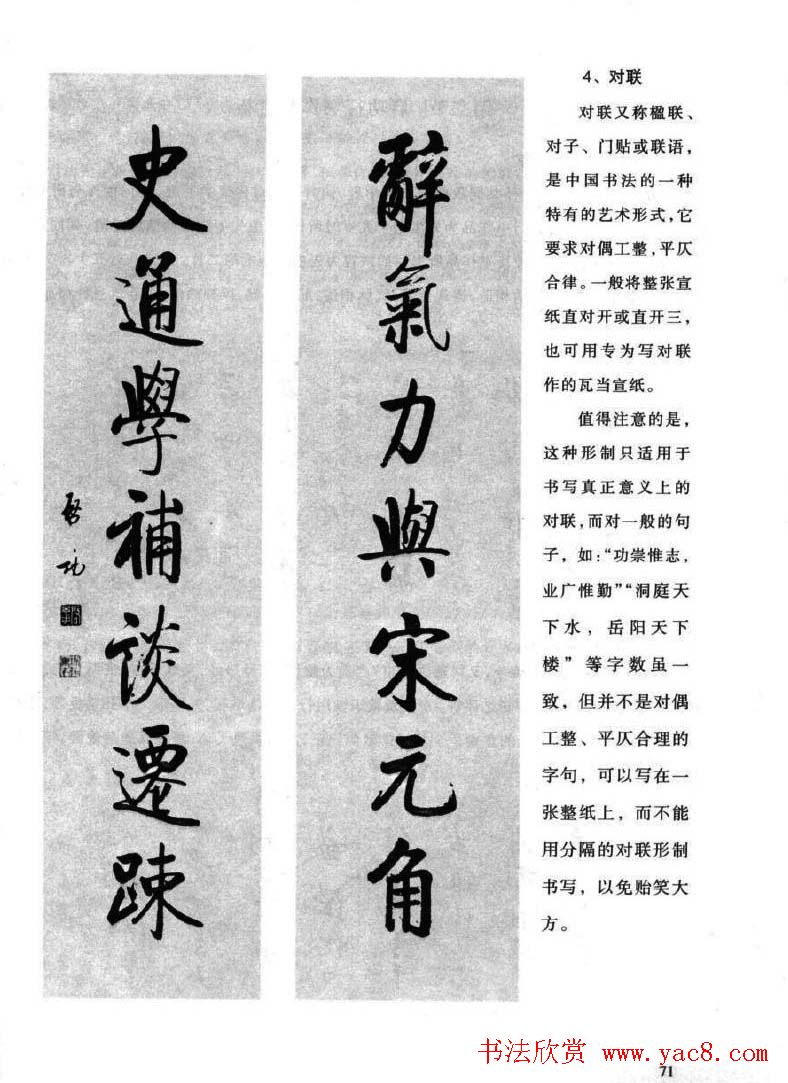 4、对联
对联又称楹联、
对子、门贴或联语，
是中国书法的一种
特有的艺术形式，它
要求对偶工整，平仄
合律。一般将整张宣
纸直对开或直开三，
也可用专为写对联
作的瓦当宣纸。
值得注意的是，
这种形制只适用于
书写真正意义上的
对联，而对一般的句
子，如：“功崇惟志，
业广惟勤”“洞庭天
下水，岳阳天下
楼”等字数虽一
致，但并不是对偶
工整、平仄合理的
字句，可以写在一
张整纸上，而不能
用分隔的对联形制
书写，以免贻笑大
方。
辭氣力與宋元角
史通學補談遷疎
啓功
书法欣赏 www.yac8.com
71